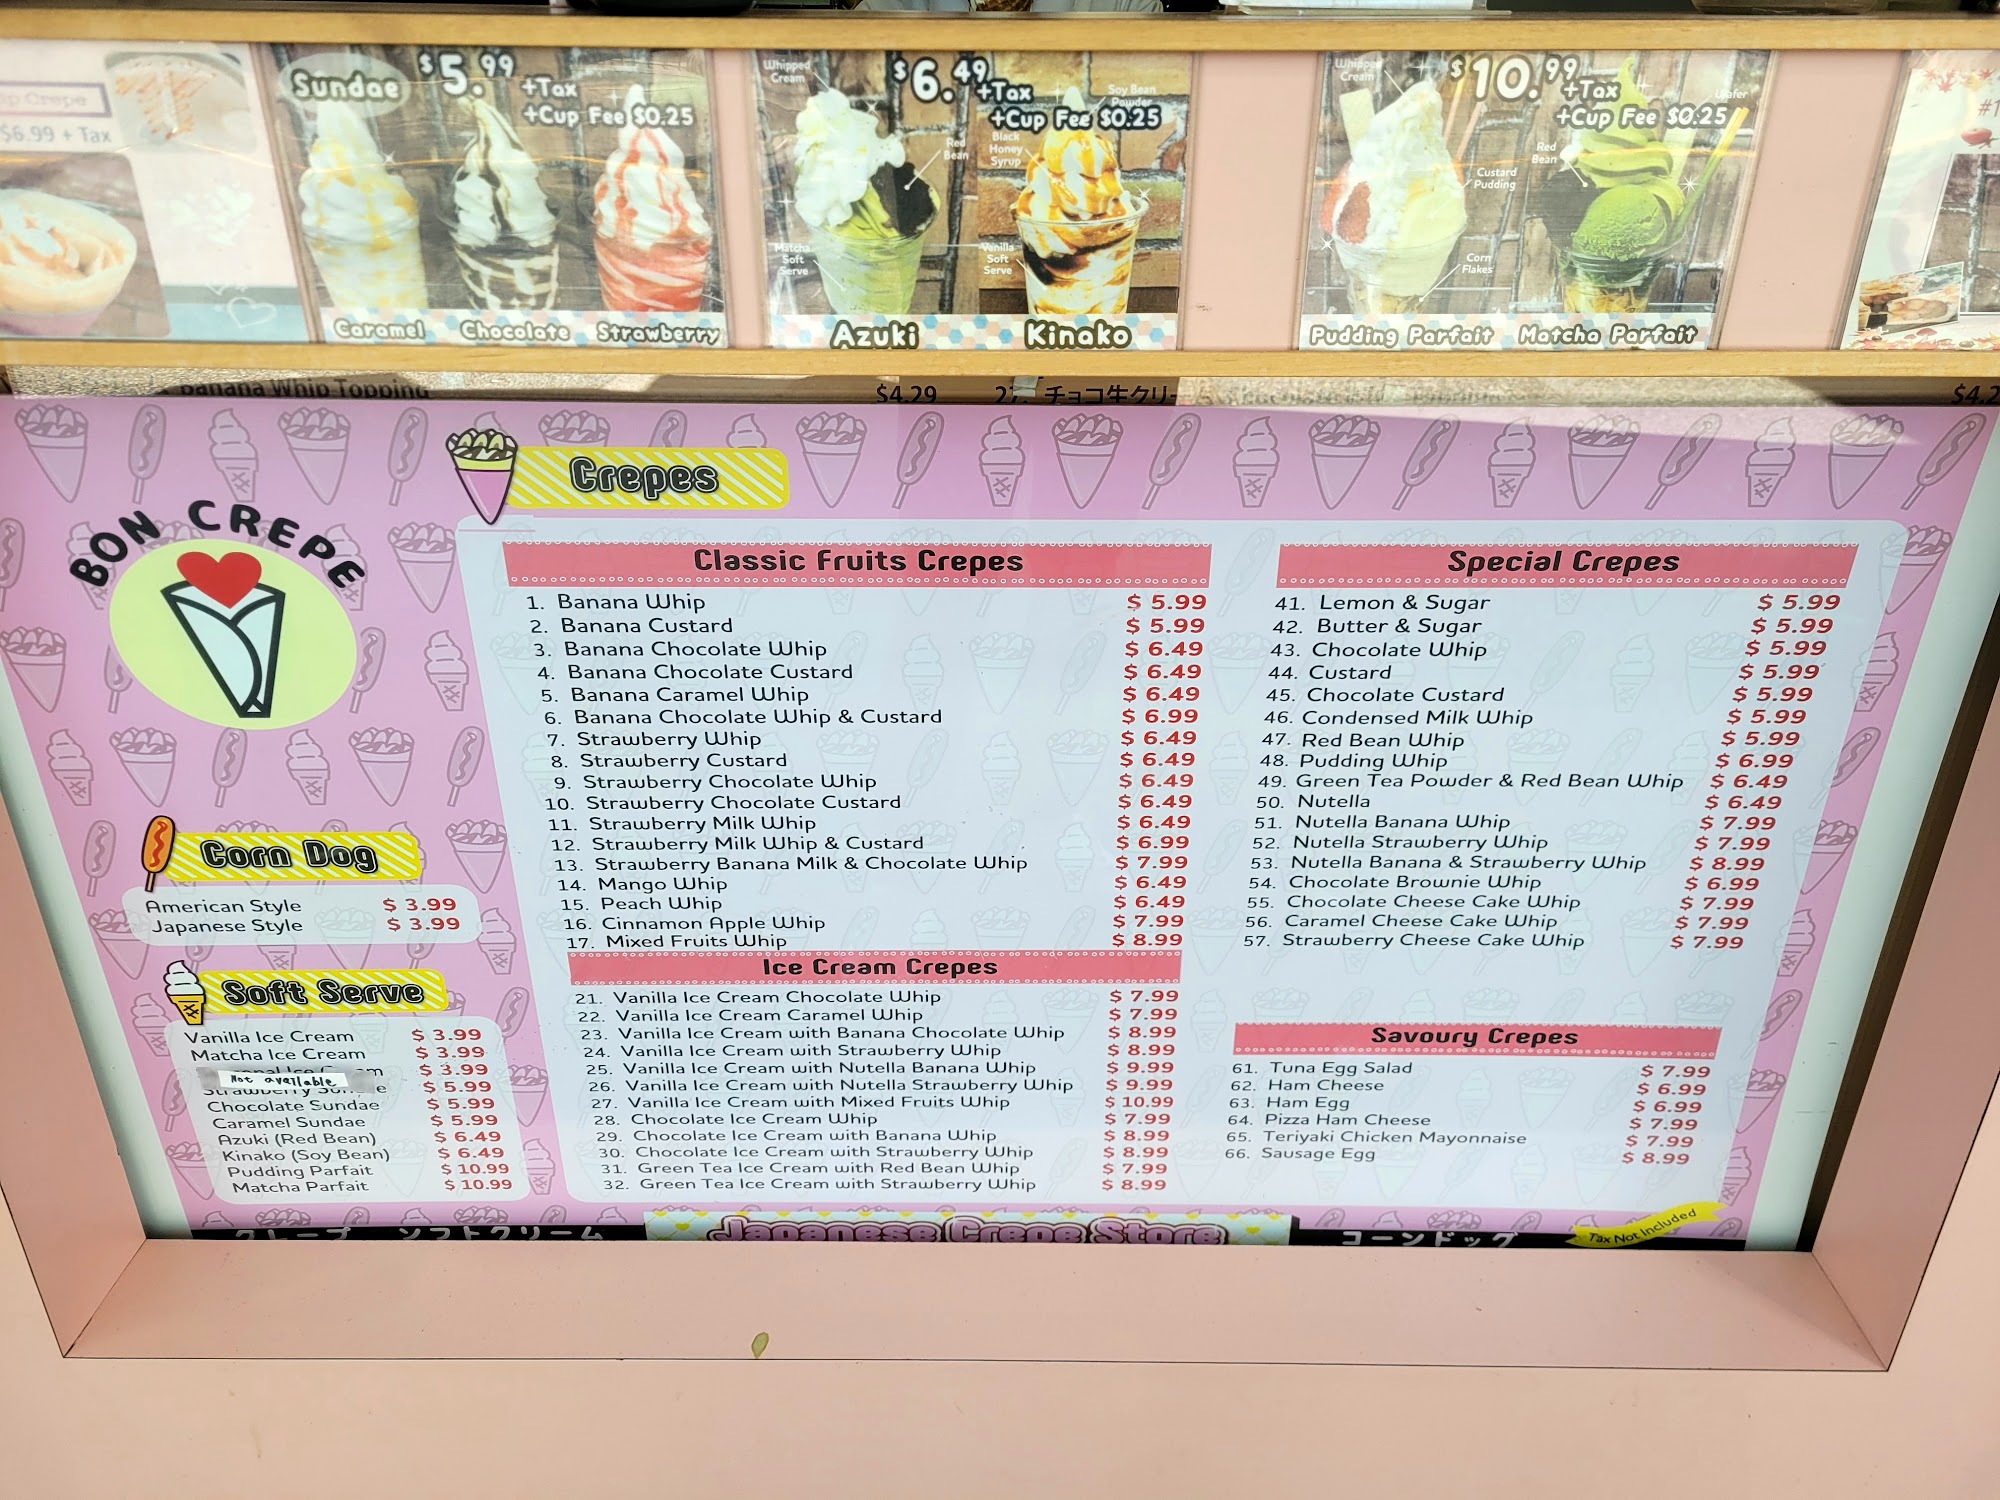 Crepe
$6.99 + Tax
Sundae
$5.99
+Tax
+Cup Fee $0.25
Caramel
Chocolate
Strawberry
Whipped
Cream
$6.49
+Tax
+Cup Fee $0.25
Soy Bean
Powder
Red
Bean
Black
Honey
Syrup
Matcha
Soft
Serve
Vanilla
Soft
Serve
Azuki
Kinako
Whipped
Cream
$10.99
+Tax
+Cup Fee $0.25
Wafer
Red
Bean
Custard
Pudding
Corn
Flakes
Pudding Parfait
Matcha Parfait
#1
Banana Whip Topping
$4.29
27. チョコ生クリー
$4.2
BON CREPE
Crepes
Classic Fruits Crepes
1. Banana Whip $ 5.99
2. Banana Custard $ 5.99
3. Banana Chocolate Whip $ 6.49
4. Banana Chocolate Custard $ 6.49
5. Banana Caramel Whip $ 6.49
6. Banana Chocolate Whip & Custard $ 6.99
7. Strawberry Whip $ 6.49
8. Strawberry Custard $ 6.49
9. Strawberry Chocolate Whip $ 6.49
10. Strawberry Chocolate Custard $ 6.49
11. Strawberry Milk Whip $ 6.49
12. Strawberry Milk Whip & Custard $ 6.99
13. Strawberry Banana Milk & Chocolate Whip $ 7.99
14. Mango Whip $ 6.49
15. Peach Whip $ 6.49
16. Cinnamon Apple Whip $ 7.99
17. Mixed Fruits Whip $ 8.99
Ice Cream Crepes
21. Vanilla Ice Cream Chocolate Whip $ 7.99
22. Vanilla Ice Cream Caramel Whip $ 7.99
23. Vanilla Ice Cream with Banana Chocolate Whip $ 8.99
24. Vanilla Ice Cream with Strawberry Whip $ 8.99
25. Vanilla Ice Cream with Nutella Banana Whip $ 9.99
26. Vanilla Ice Cream with Nutella Strawberry Whip $ 9.99
27. Vanilla Ice Cream with Mixed Fruits Whip $ 10.99
28. Chocolate Ice Cream Whip $ 7.99
29. Chocolate Ice Cream with Banana Whip $ 8.99
30. Chocolate Ice Cream with Strawberry Whip $ 8.99
31. Green Tea Ice Cream with Red Bean Whip $ 7.99
32. Green Tea Ice Cream with Strawberry Whip $ 8.99
Special Crepes
41. Lemon & Sugar $ 5.99
42. Butter & Sugar $ 5.99
43. Chocolate Whip $ 5.99
44. Custard $ 5.99
45. Chocolate Custard $ 5.99
46. Condensed Milk Whip $ 5.99
47. Red Bean Whip $ 5.99
48. Pudding Whip $ 6.99
49. Green Tea Powder & Red Bean Whip $ 6.49
50. Nutella $ 6.49
51. Nutella Banana Whip $ 7.99
52. Nutella Strawberry Whip $ 7.99
53. Nutella Banana & Strawberry Whip $ 8.99
54. Chocolate Brownie Whip $ 6.99
55. Chocolate Cheese Cake Whip $ 7.99
56. Caramel Cheese Cake Whip $ 7.99
57. Strawberry Cheese Cake Whip $ 7.99
Savoury Crepes
61. Tuna Egg Salad $ 7.99
62. Ham Cheese $ 6.99
63. Ham Egg $ 6.99
64. Pizza Ham Cheese $ 7.99
65. Teriyaki Chicken Mayonnaise $ 7.99
66. Sausage Egg $ 8.99
Corn Dog
American Style $ 3.99
Japanese Style $ 3.99
Soft Serve
Vanilla Ice Cream $ 3.99
Matcha Ice Cream $ 3.99
$ 3.99
Not available
$ 5.99
Chocolate Sundae $ 5.99
Caramel Sundae $ 5.99
Azuki (Red Bean) $ 6.49
Kinako (Soy Bean) $ 6.49
Pudding Parfait $ 10.99
Matcha Parfait $ 10.99
クレープ ソフトクリーム
Japanese Crepe Store
コーンドッグ
Tax Not Included